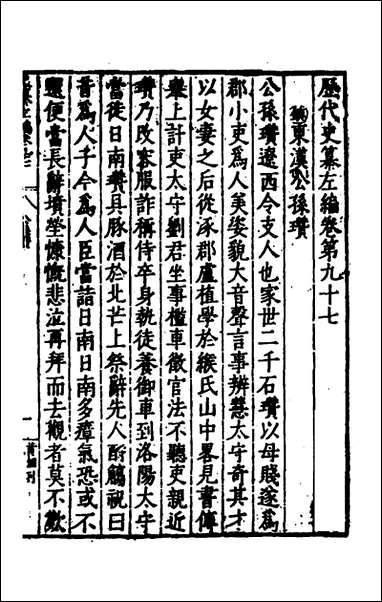 歷代史纂左編卷第九十七
東漢公孫瓚
公孫瓚遼西令支人也家世二千石瓚以母賤遂為
郡小吏為人美姿貌大音聲言事辨慧太守奇其才
以女妻之後從涿郡盧植學於緱氏山中畧見書傳
舉上計吏太守劉君坐事檻車徵官法不聽吏親近
瓚乃改容服詐稱侍卒身執徒養御車到洛陽太守
當徙日南瓚具豚酒於北芒上祭辭先人酹觴祝曰
昔為人子今為人臣當詣日南日南多瘴氣恐或不
還便當長辭墳塋慷慨悲泣再拜而去觀者莫不歎